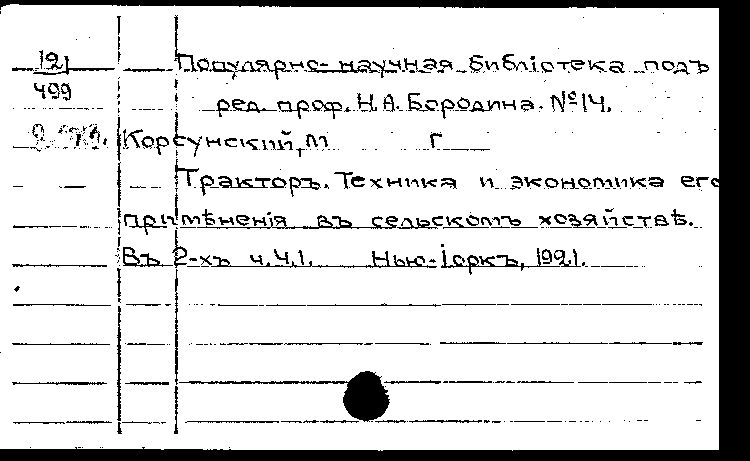 121 Популярно-научная библiотека подъ
499 ред. проф. Н.А. Бородина. №14.
Корсунский, М Г
Тракторъ. Техника и экономика его
примѣненiя въ сельскомъ хозяйствѣ.
Въ 2-хъ ч. Ч.1. Нью-Iоркъ, 1921.